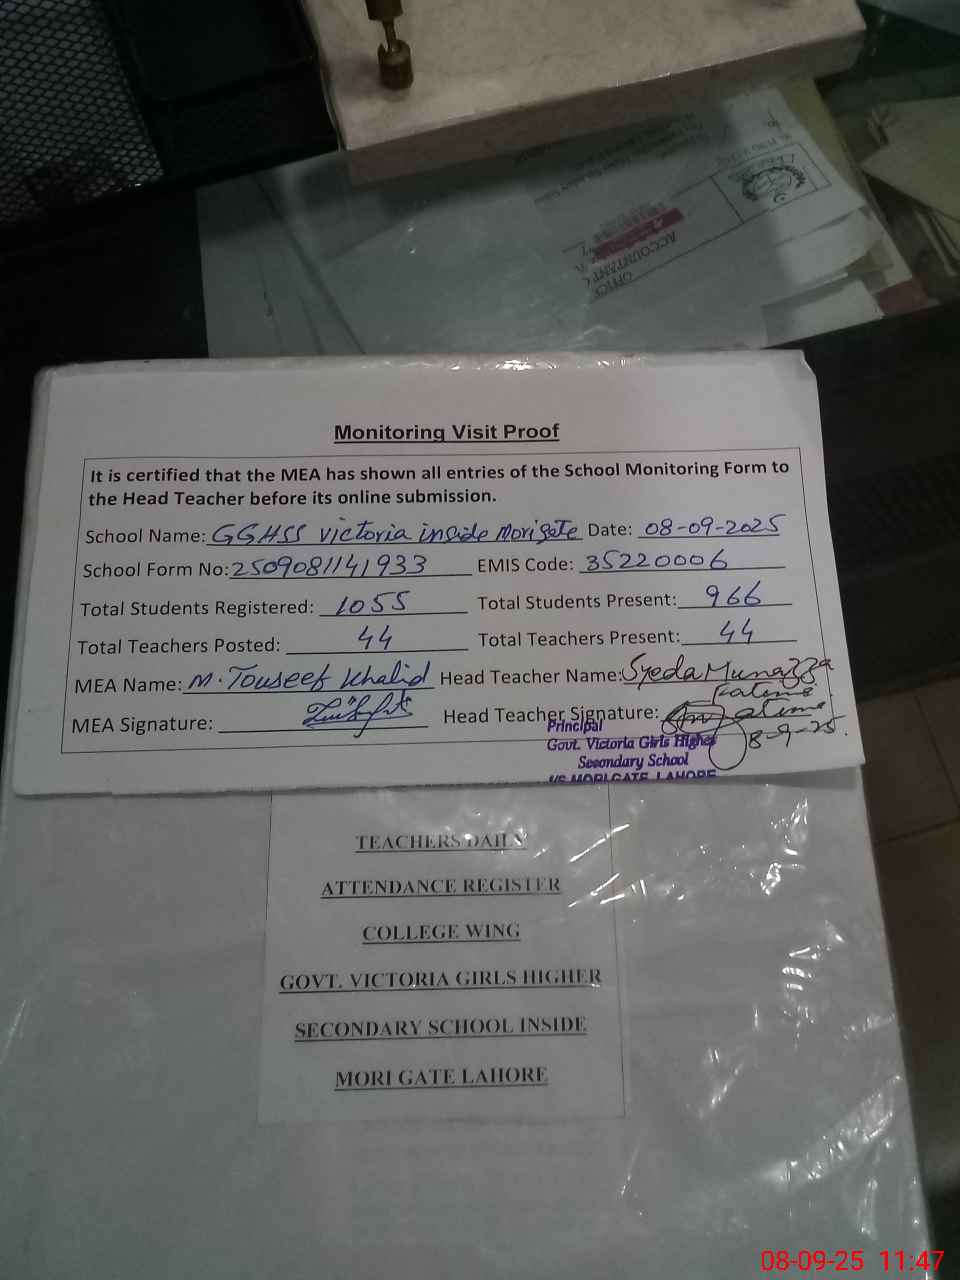 OFFICE
ACCOUNTANT
Monitoring Visit Proof
It is certified that the MEA has shown all entries of the School Monitoring Form to
the Head Teacher before its online submission.
School Name: GGHSS victoria inside Morigate Date: 08-09-2025
School Form No: 2509081141933 EMIS Code: 35220006
Total Students Registered: 1055 Total Students Present: 966
Total Teachers Posted: 44 Total Teachers Present: 44
MEA Name: M. Touseef Khalid Head Teacher Name: Syeda Munazza
Fatima
MEA Signature: Head Teacher Signature:
8-9-25.
Principal
Govt. Victoria Girls Higher
Secondary School
I/S MORI GATE LAHORE
TEACHERS DAILY
ATTENDANCE REGISTER
COLLEGE WING
GOVT. VICTORIA GIRLS HIGHER
SECONDARY SCHOOL INSIDE
MORI GATE LAHORE
08-09-25 11:47